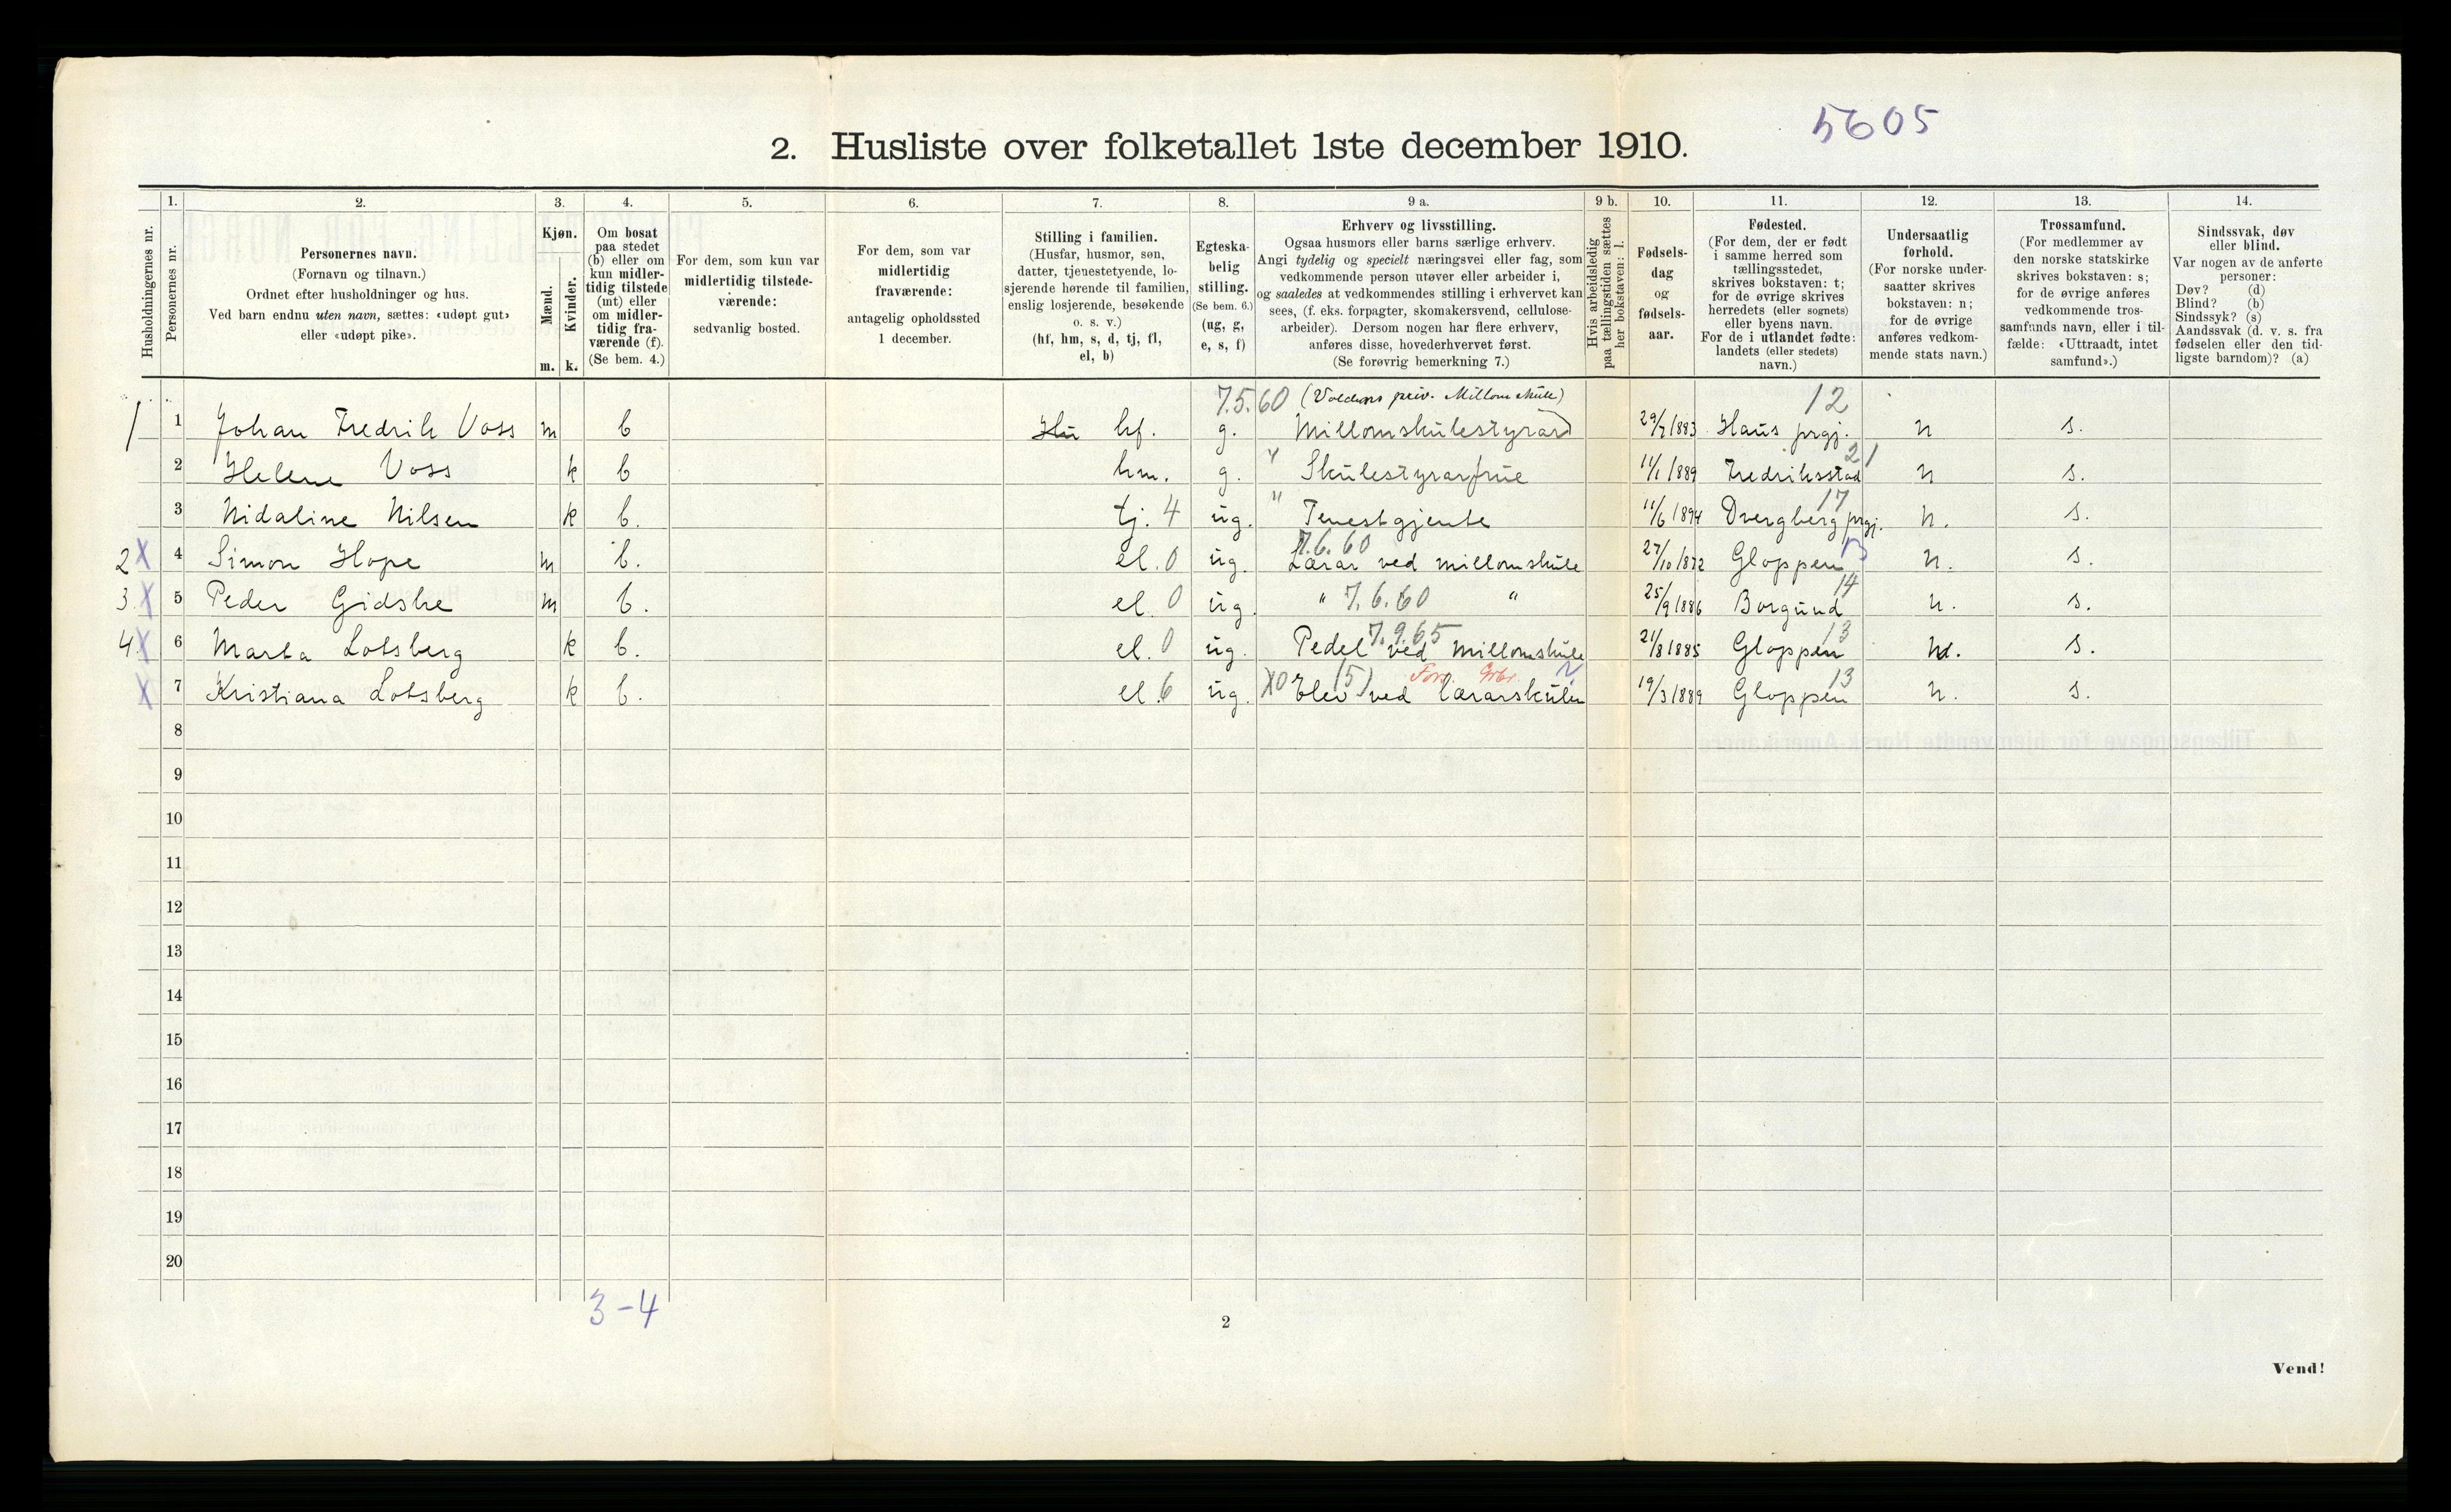 5605
2. Husliste over folketallet 1ste december 1910.
Husholdningernes nr.
1. Personernes nr.
2. Personernes navn. (Fornavn og tilnavn.) Ordnet efter husholdninger og hus. Ved barn endnu uten navn, sættes: «udøpt gut» eller «udøpt pike».
3. Kjøn. Mænd. m. Kvinder. k.
4. Om bosat paa stedet (b) eller om kun midlertidig tilstede (mt) eller om midlertidig fraværende (f). (Se bem. 4.)
5. For dem, som kun var midlertidig tilstedeværende: sedvanlig bosted.
6. For dem, som var midlertidig fraværende: antagelig opholdssted 1 december.
7. Stilling i familien. (Husfar, husmor, søn, datter, tjenestetyende, losjerende hørende til familien, enslig losjerende, besøkende o. s. v.) (hf, hm, s, d, tj, fl, el, b)
8. Egteskabelig stilling. (Se bem. 6.) (ug, g, e, s, f)
9 a. Erhverv og livsstilling. Ogsaa husmors eller barns særlige erhverv. Angi tydelig og specielt næringsvei eller fag, som vedkommende person utøver eller arbeider i, og saaledes at vedkommendes stilling i erhvervet kan sees, (f. eks. forpagter, skomakersvend, cellulosearbeider). Dersom nogen har flere erhverv, anføres disse, hovederhvervet først. (Se forøvrig bemerkning 7.)
9 b. Hvis arbeidsledig paa tællingstiden sættes her bokstaven: l.
10. Fødselsdag og fødselsaar.
11. Fødested. (For dem, der er født i samme herred som tællingsstedet, skrives bokstaven: t; for de øvrige skrives herredets (eller sognets) eller byens navn. For de i utlandet fødte: landets (eller stedets) navn.)
12. Undersaatlig forhold. (For norske undersaatter skrives bokstaven: n; for de øvrige anføres vedkommende stats navn.)
13. Trossamfund. (For medlemmer av den norske statskirke skrives bokstaven: s; for de øvrige anføres vedkommende trossamfunds navn, eller i tilfælde: «Uttraadt, intet samfund».)
14. Sindssvak, døv eller blind. Var nogen av de anførte personer: Døv? (d) Blind? (b) Sindssyk? (s) Aandssvak (d. v. s. fra fødselen eller den tidligste barndom)? (a)
7.5.60 (Voldens priv. Millomskule) 12
1 1 Johan Fredrik Voss m b hf. g. Millomskulestyrar 29/7 1883 Haus prgj. n s.
2 Helene Voss k b hm. g. " Skulestyrarfrue 11/1 1889 Fredriksstad 21 n s.
3 Nidaline Nilsen k b. tj. 4 ug. " Tenestgjente 11/6 1894 Dvergberg prgj. 17 n. s.
2 X 4 Simon Hope m b. el. 0 ug. 7.6.60 Lærar ved millomskule 27/10 1872 Gloppen 13 n. s.
3 X 5 Peder Gidske m b. el. 0 ug. " 7.6.60 " 25/9 1886 Borgund 14 n. s.
4 X 6 Marta Lotsberg k b. el. 0 ug. 7.9.65 Pedel ved millomskule 21/8 1885 Gloppen 13 n. s.
X 7 Kristiana Lotsberg k b. el. 6 ug. X0 (5) Elev ved lærarskulen 19/3 1889 Gloppen 13 n. s.
8
9
10
11
12
13
14
15
16
17
18
19
20
3-4
2
Vend!